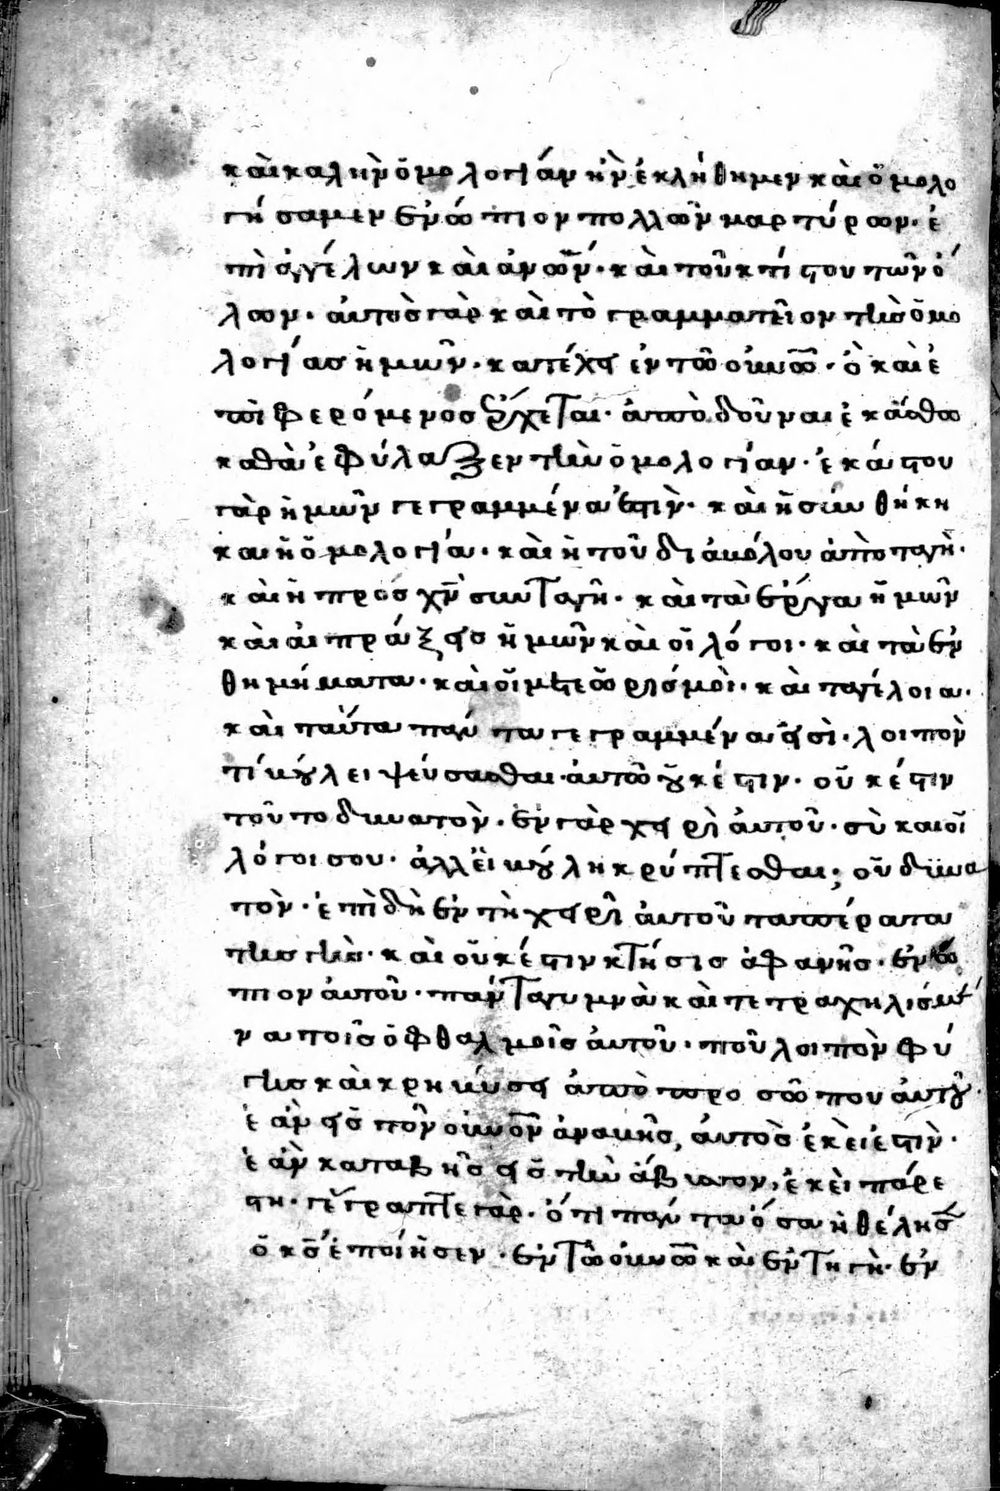 καὶ καλὴν ὁμολογίαν ἣν ἐκλήθημεν καὶ ὁμολο
γήσαμεν ἐνώπιον πολλῶν μαρτύρων· ἐ
πὶ ἀγγέλων καὶ ἀνῶν· καὶ τοῦ κτίστου τῶν ὅ
λων· αὐτὸς γὰρ καὶ τὸ γραμματεῖον τῆς ὁμο
λογίας ἡμῶν· κατέχει ἐν τῶ οὐνῶ· ὃ καὶ ἐ
πιφερόμενος ἔρχεται· ἀποδοῦναι ἑκάστω
καθὰ ἐφύλαξεν τὴν ὁμολογίαν· ἑκάστου
γὰρ ἡμῶν γεγραμμένα ἐστὶν· καὶ ἡ συνθήκη
καὶ ἡ ὁμολογία· καὶ ἡ τοῦ διαβόλου ἀποταγὴ·
καὶ ἡ πρὸς χν συνταγὴ· καὶ τὰ ἔργα ἡμῶν
καὶ αἱ πράξεις ἡμῶν καὶ οἱ λόγοι· καὶ τὰ ἐν
θημήματα· καὶ οἱ μετεωρισμοὶ· καὶ τα γέλοια·
καὶ ταῦτα πάντα γεγραμμένα εἰσὶ· λοιπὸν
τί βούλει ψεύσασθαι αὐτῶ οὐκ ἔστιν· οὐκ ἔστιν
τοῦτο δυνατὸν· ἐν γὰρ χειρὶ αὐτοῦ· σὺ καὶ οἱ
λόγοι σου· ἀλλ εἰ βούλη κρύπτεσθαι; οὐ δυνα
τὸν· ἐπὶ δὴ ἐν τῇ χειρὶ αὐτοῦ τὰ πέρατα
τῆς γῆς· καὶ οὐκ ἔστιν κτῆσις ἀφανὴς· ἐνώ
πιον αὐτοῦ· πάντα γυμνὰ καὶ τετραχηλισμέ
να τοῖς ὀφθαλμοῖς αὐτοῦ· ποῦ λοιπὸν φύ
γης καὶ κρηβύσει ἀπὸ προσώπου αὐτοῦ·
ἐὰν εἰς τὸν οὐνὸν ἀναβῆς, αὐτὸς ἐκεῖ ἐστὶν·
ἐὰν καταβῆς εἰς τὴν ἄβυσσον, ἐκεὶ πάρε
στη· γέγραπτε γὰρ· ὅτι πάντα ὅσα ἠθέλησ
ὁ κς ἐποίησεν· ἐν τῶ οὐνῶ καὶ ἐν τῇ γῇ· ἐν